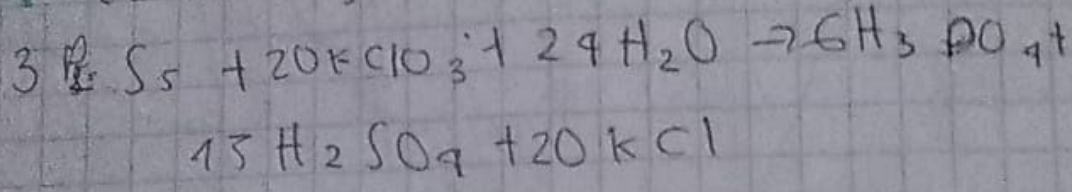 3 P₂S₅ + 20KClO₃ + 24H₂O → 6H₃PO₄ +
15H₂SO₄ + 20KCl